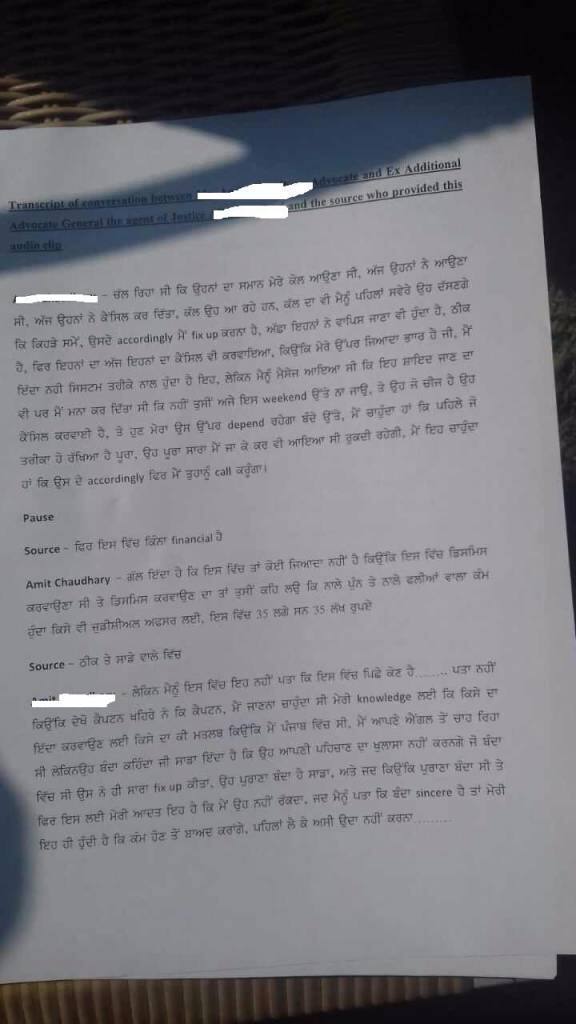 Transcript of conversation between Advocate and Ex Additional
Advocate General the agent of Justice and the source who provided this
audio clip
– ਚੱਲ ਰਿਹਾ ਸੀ ਕਿ ਉਹਨਾਂ ਦਾ ਸਮਾਨ ਮੇਰੇ ਕੋਲ ਆਉਣਾ ਸੀ, ਅੱਜ ਉਹਨਾਂ ਨੇ ਆਉਣਾ
ਸੀ, ਅੱਜ ਉਹਨਾਂ ਨੇ ਕੈਂਸਿਲ ਕਰ ਦਿੱਤਾ, ਕੱਲ ਉਹ ਆ ਰਹੇ ਹਨ, ਕੱਲ ਦਾ ਵੀ ਮੈਨੂੰ ਪਹਿਲਾਂ ਸਵੇਰੇ ਉਹ ਦੱਸਣਗੇ
ਕਿ ਕਿਹੜੇ ਸਮੇਂ, ਉਸਦੇ accordingly ਮੈਂ fix up ਕਰਨਾ ਹੈ, ਅੱਛਾ ਇਹਨਾਂ ਨੇ ਵਾਪਿਸ ਜਾਣਾ ਵੀ ਹੁੰਦਾ ਹੈ, ਠੀਕ
ਹੈ, ਫਿਰ ਇਹਨਾਂ ਦਾ ਅੱਜ ਇਹਨਾਂ ਦਾ ਕੈਂਸਿਲ ਵੀ ਕਰਵਾਇਆ, ਕਿਉਂਕਿ ਮੇਰੇ ਉੱਪਰ ਜਿਆਦਾ ਭਾਰ ਹੋ ਜੀ, ਮੈਂ
ਇੰਦਾ ਨਹੀ ਸਿਸਟਮ ਤਰੀਕੇ ਨਾਲ ਹੁੰਦਾ ਹੈ ਇਹ, ਲੇਕਿਨ ਮੈਨੂੰ ਮੈਸੇਜ ਆਇਆ ਸੀ ਕਿ ਇਹ ਸ਼ਾਇਦ ਜਾਣ ਦਾ
ਵੀ ਪਰ ਮੈਂ ਮਨਾ ਕਰ ਦਿੱਤਾ ਸੀ ਕਿ ਨਹੀਂ ਤੁਸੀਂ ਅਜੇ ਇਸ weekend ਉੱਤੇ ਨਾ ਜਾਉ, ਤੇ ਉਹ ਜੋ ਚੀਜ ਹੈ ਉਹ
ਕੈਂਸਿਲ ਕਰਵਾਈ ਹੈ, ਤੇ ਹੁਣ ਮੇਰਾ ਉਸ ਉੱਪਰ depend ਰਹੇਗਾ ਬੰਦੇ ਉੱਤੇ, ਮੈਂ ਚਾਹੁੰਦਾ ਹਾਂ ਕਿ ਪਹਿਲੇ ਜੋ
ਤਰੀਕਾ ਹੋ ਰੱਖਿਆ ਹੈ ਪੂਰਾ, ਉਹ ਪੂਰਾ ਸਾਰਾ ਮੈਂ ਜਾ ਕੇ ਕਰ ਵੀ ਆਇਆ ਸੀ ਰੁਕਦੀ ਰਹੇਗੀ, ਮੈਂ ਇਹ ਚਾਹੁੰਦਾ
ਹਾਂ ਕਿ ਉਸ ਦੇ accordingly ਫਿਰ ਮੈਂ ਤੁਹਾਨੂੰ call ਕਰੂੰਗਾ।
Pause
Source – ਫਿਰ ਇਸ ਵਿੱਚ ਕਿੰਨਾ financial ਹੈ
Amit Chaudhary – ਗੱਲ ਇੰਦਾ ਹੈ ਕਿ ਇਸ ਵਿੱਚ ਤਾਂ ਕੋਈ ਜਿਆਦਾ ਨਹੀਂ ਹੈ ਕਿਉਂਕਿ ਇਸ ਵਿੱਚ ਡਿਸਮਿਸ
ਕਰਵਾਉਣਾ ਸੀ ਤੇ ਡਿਸਮਿਸ ਕਰਵਾਉਣ ਦਾ ਤਾਂ ਤੁਸੀਂ ਕਹਿ ਲਉ ਕਿ ਨਾਲੇ ਪੁੰਨ ਤੇ ਨਾਲੇ ਫਲੀਆਂ ਵਾਲਾ ਕੰਮ
ਹੁੰਦਾ ਕਿਸੇ ਵੀ ਜੁਡੀਸ਼ੀਅਲ ਅਫਸਰ ਲਈ, ਇਸ ਵਿੱਚ 35 ਲਗੇ ਸਨ 35 ਲੱਖ ਰੁਪਏ
Source – ਠੀਕ ਤੇ ਸਾਡੇ ਵਾਲੇ ਵਿੱਚ
– ਲੇਕਿਨ ਮੈਨੂੰ ਇਸ ਵਿੱਚ ਇਹ ਨਹੀਂ ਪਤਾ ਕਿ ਇਸ ਵਿੱਚ ਪਿਛੇ ਕੋਣ ਹੈ........ ਪਤਾ ਨਹੀਂ
ਕਿਉਂਕਿ ਦੇਖੋ ਕੈਪਟਨ ਖਹਿਰੇ ਨੇ ਕਿ ਕੈਪਟਨ, ਮੈਂ ਜਾਣਨਾ ਚਾਹੁੰਦਾ ਸੀ ਮੇਰੀ knowledge ਲਈ ਕਿ ਕਿਸੇ ਦਾ
ਇੰਦਾ ਕਰਵਾਉਣ ਲਈ ਕਿਸੇ ਦਾ ਕੀ ਮਤਲਬ ਕਿਉਂਕਿ ਮੈਂ ਪੰਜਾਬ ਵਿੱਚ ਸੀ, ਮੈਂ ਆਪਣੇ ਐਂਗਲ ਤੋਂ ਚਾਹ ਰਿਹਾ
ਸੀ ਲੇਕਿਨਉਹ ਬੰਦਾ ਕਹਿੰਦਾ ਜੀ ਸਾਡਾ ਇੰਦਾ ਹੈ ਕਿ ਉਹ ਆਪਣੀ ਪਹਿਚਾਣ ਦਾ ਖੁਲਾਸਾ ਨਹੀਂ ਕਰਨਗੇ ਜੋ ਬੰਦਾ
ਵਿੱਚ ਸੀ ਉਸ ਨੇ ਹੀ ਸਾਰਾ fix up ਕੀਤਾ, ਉਹ ਪੁਰਾਣਾ ਬੰਦਾ ਹੈ ਸਾਡਾ, ਅਤੇ ਜਦ ਕਿਉਂਕਿ ਪੁਰਾਣਾ ਬੰਦਾ ਸੀ ਤੇ
ਫਿਰ ਇਸ ਲਈ ਮੇਰੀ ਆਦਤ ਇਹ ਹੈ ਕਿ ਮੈਂ ਉਹ ਨਹੀਂ ਰੱਕਦਾ, ਜਦ ਮੈਨੂੰ ਪਤਾ ਕਿ ਬੰਦਾ sincere ਹੈ ਤਾਂ ਮੇਰੀ
ਇਹ ਹੀ ਹੁੰਦੀ ਹੈ ਕਿ ਕੰਮ ਹੋਣ ਤੋਂ ਬਾਅਦ ਕਰਾਂਗੇ, ਪਹਿਲਾਂ ਲੈ ਕੇ ਅਸੀ ਉਦਾ ਨਹੀਂ ਕਰਨਾ.........